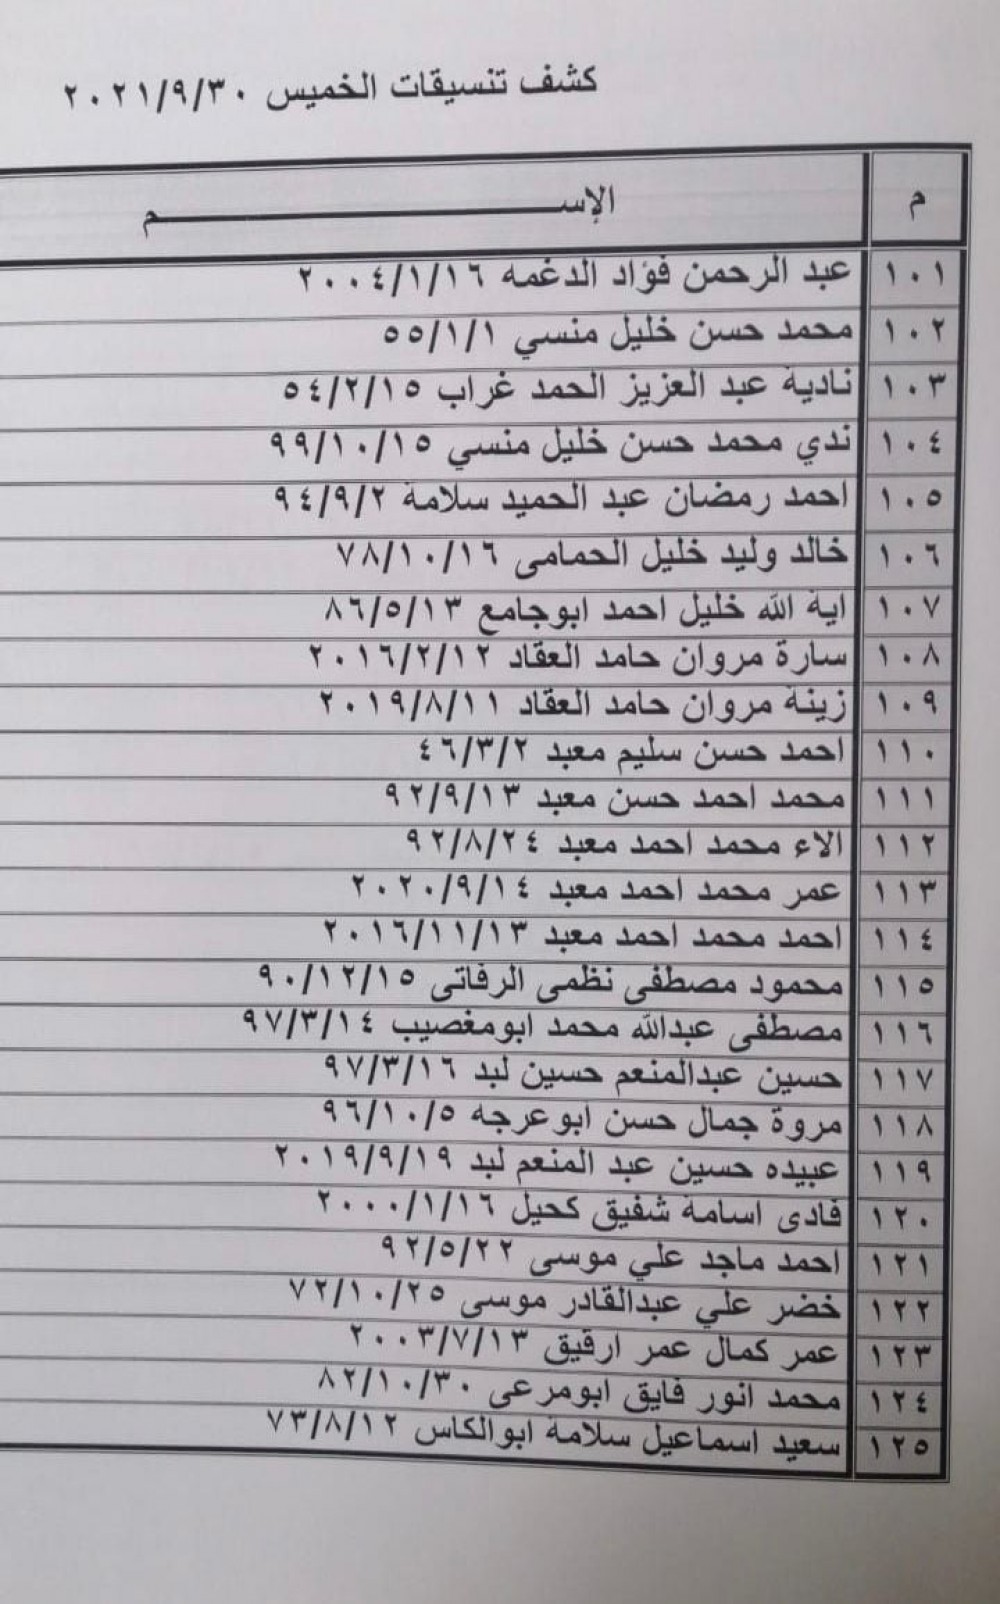 كشف تنسيقات الخميس ٢٠٢١/٩/٣٠
م الإســـــــــــــم
١٠١ عبد الرحمن فؤاد الدغمه ٢٠٠٤/١/١٦
١٠٢ محمد حسن خليل منسي ٥٥/١/١
١٠٣ نادية عبد العزيز الحمد غراب ٥٤/٢/١٥
١٠٤ ندي محمد حسن خليل منسي ٩٩/١٠/١٥
١٠٥ احمد رمضان عبد الحميد سلامة ٩٤/٩/٢
١٠٦ خالد وليد خليل الحمامى ٧٨/١٠/١٦
١٠٧ اية الله خليل احمد ابوجامع ٨٦/٥/١٣
١٠٨ سارة مروان حامد العقاد ٢٠١٦/٢/١٢
١٠٩ زينة مروان حامد العقاد ٢٠١٩/٨/١١
١١٠ احمد حسن سليم معبد ٤٦/٣/٢
١١١ محمد احمد حسن معبد ٩٢/٩/١٣
١١٢ الاء محمد احمد معبد ٩٢/٨/٢٤
١١٣ عمر محمد احمد معبد ٢٠٢٠/٩/١٤
١١٤ احمد محمد احمد معبد ٢٠١٦/١١/١٣
١١٥ محمود مصطفى نظمى الرفاتى ٩٠/١٢/١٥
١١٦ مصطفى عبدالله محمد ابومغصيب ٩٧/٣/١٤
١١٧ حسين عبدالمنعم حسين لبد ٩٧/٣/١٦
١١٨ مروة جمال حسن ابوعرجه ٩٦/١٠/٥
١١٩ عبيده حسين عبد المنعم لبد ٢٠١٩/٩/١٩
١٢٠ فادى اسامة شفيق كحيل ٢٠٠٠/١/١٦
١٢١ احمد ماجد علي موسى ٩٢/٥/٢٢
١٢٢ خضر علي عبدالقادر موسى ٧٢/١٠/٢٥
١٢٣ عمر كمال عمر ارقيق ٢٠٠٣/٧/١٣
١٢٤ محمد انور فايق ابومرعى ٨٢/١٠/٣٠
١٢٥ سعيد اسماعيل سلامة ابوالكاس ٧٣/٨/١٢